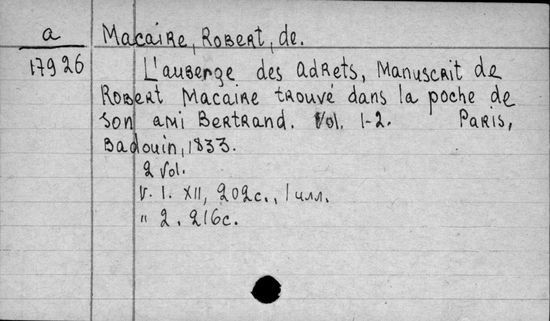 a
17926
Macaire, Robert, de.
L'auberge des adrets, Manuscrit de
Robert Macaire trouvé dans la poche de
son ami Bertrand. Vol. 1-2. Paris,
Badouin, 1833.
2 vol.
V. 1. XII, 202c., 1 илл.
" 2. 216c.